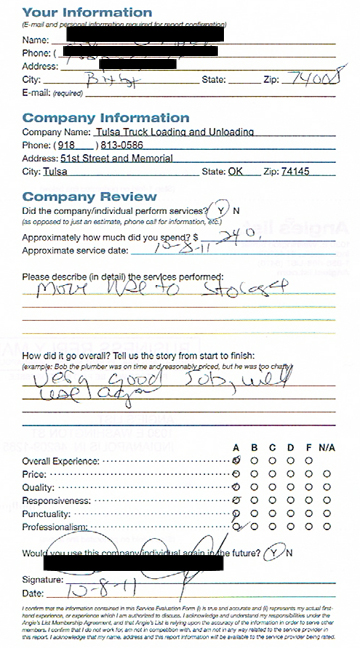 Your Information
(E-mail and personal information required for report confirmation)
Name:
Phone: (
Address:
City: Bixby State: Zip: 74008
E-mail: (required)
Company Information
Company Name: Tulsa Truck Loading and Unloading
Phone: (918 ) 813-0586
Address: 51st Street and Memorial
City: Tulsa State: OK Zip: 74145
Company Review
Did the company/individual perform services? Y N
(as opposed to just an estimate, phone call for information, etc.)
Approximately how much did you spend? $ 240.
Approximate service date: 10-8-11
Please describe (in detail) the services performed:
Move to storage
How did it go overall? Tell us the story from start to finish:
(example: Bob the plumber was on time and reasonably priced, but he was too chatty)
Very good job, will
use again
A B C D F N/A
Overall Experience:
Price:
Quality:
Responsiveness:
Punctuality:
Professionalism:
Would you use this company/individual again in the future? Y N
Signature:
Date: 10-8-11
I confirm that the information contained in this Service Evaluation Form (i) is true and accurate and (ii) represents my actual first-
hand experience, or experience which I am authorized to discuss. I acknowledge and understand my responsibilities under the
Angie's List Membership Agreement, and that Angie's List is relying upon the accuracy of the information in order to serve other
members. I confirm that I do not work for, am not in competition with, and am not in any way related to the service provider in
this report. I acknowledge that my name, address and this report information will be available to the service provider being rated.